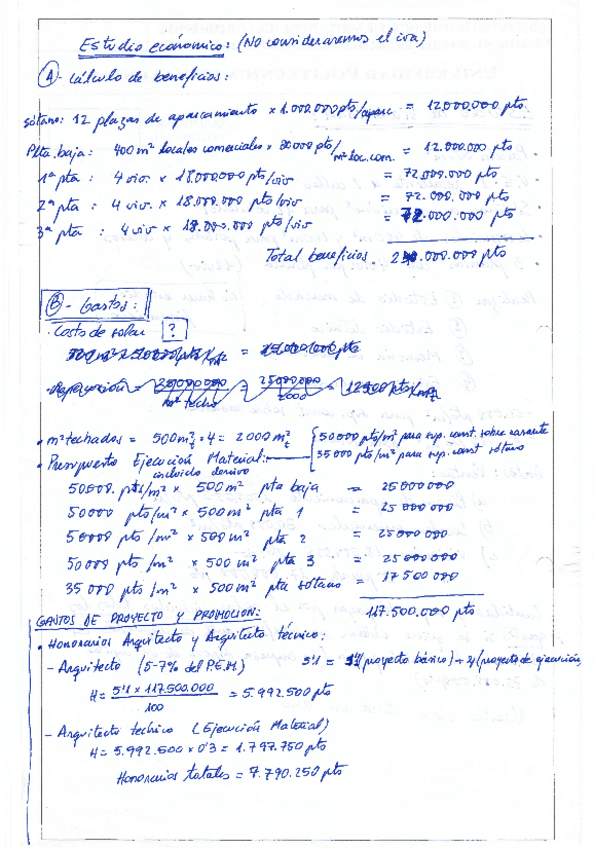 Estudio económico: (No consideraremos el iva)
A - Cálculo de beneficios:
sótano: 12 plazas de aparcamiento × 1.000.000 pts/aparc = 12.000.000 pts
Plta. baja: 400 m² locales comerciales × 30000 pts/m² loc. com. = 12.000.000 pts
1ª pta : 4 viv. × 18.000.000 pts/viv = 72.000.000 pts
2ª pta : 4 viv. × 18.000.000 pts/viv = 72.000.000 pts
3ª pta : 4 viv × 18.000.000 pts/viv = 72.000.000 pts
Total beneficios 2 .000.000 pts
B - Gastos:
· Costo de solar ?
· m² techados = 500 m²t · 4 = 2000 m²t
50000 pts/m² para sup. const. sobre rasante
35000 pts/m² para sup. const. sótano
· Presupuesto Ejecución Material:
incluido derribo
50000 pts/m² × 500 m² pta baja = 25 000 000
50000 pts/m² × 500 m² pta 1 = 25 000 000
50000 pts/m² × 500 m² pta 2 = 25 000 000
50000 pts/m² × 500 m² pta 3 = 25 000 000
35 000 pts/m² × 500 m² pta sótano = 17 500 000
117.500.000 pts
GASTOS DE PROYECTO Y PROMOCION:
· Honorarios Arquitecto y Arquitecto técnico:
- Arquitecto (5-7% del P.E.M) 5'1 = (proyecto básico) + (proyecto de ejecución
H = 5'1 × 117.500.000 / 100 = 5.992.500 pts
- Arquitecto técnico (Ejecución Material)
H = 5.992.500 × 0'3 = 1.797.750 pts
Honorarios totales = 7.790.250 pts